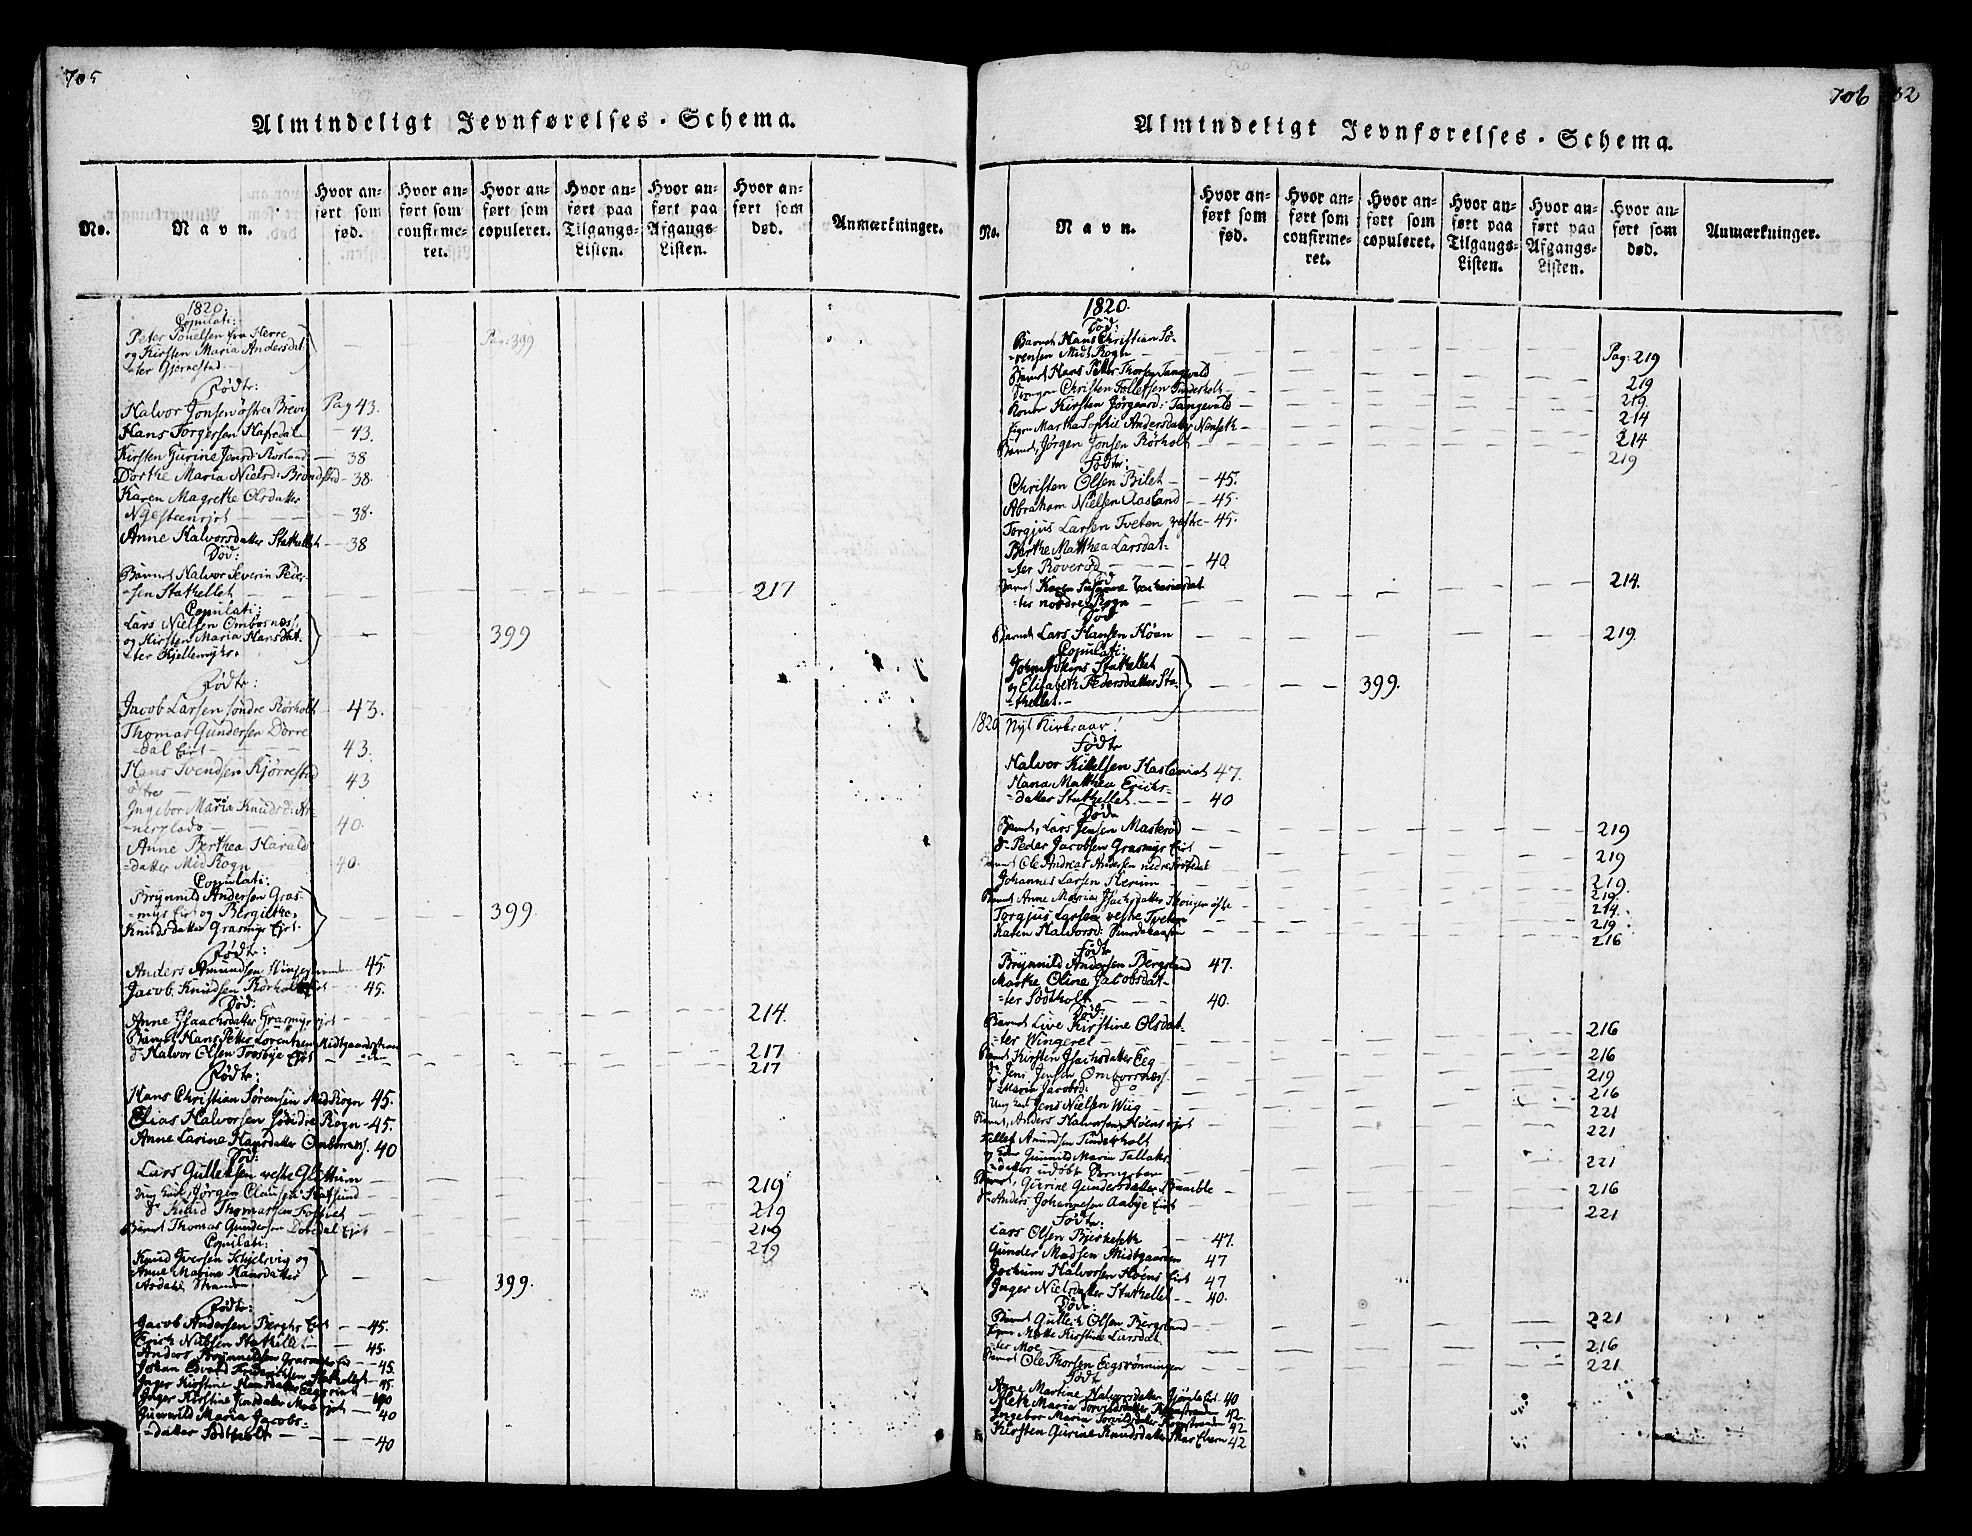 705
Almindeligt Jevnførelses-Schema.
No.
Navn.
Hvor an-
ført som
fød.
Hvor an-
ført som
confirme-
ret.
Hvor an-
ført som
copuleret.
Hvor an-
ført paa
Tilgangs-
Listen.
Hvor an-
ført paa
Afgangs-
Listen.
Hvor an-
ført som
død.
Anmærkninger.
1820
Copulati:
Peter Pouelsen fra Herre
og Kirsten Maria Andersdat-
ter Gjernestad Pag: 399
Fødte:
Halvor Jonsen østre Brevig Pag 43.
Hans Torgersen Hafredal - 43.
Kirsten Gurine - 38
Dorthe Maria Nielsd: - 38.
Karen Magrethe Olsdatter
- 38.
Anne Halvorsdatter Stathellet - 38
Død:
Barnet Halvor Severin Peder-
sen Stathellet 217
Copulati:
Lars Nielsen Ombornæss,
og Kirsten Maria Hansdat-
ter Kjellemyhr. 399
Fødte:
Jacob Larsen søndre Rørholt - 43.
Thomas Gundersen Dorre-
dal Eiet 43.
Hans Svendsen Kjørrestad
østre - 43
Ingebor Maria Knudsd:
40.
Anne Berthea Harald-
datter Mid Rogn 40.
Copulati:
Brynnild Andersen Gras-
myr Eiet og Bergitthe
Knudsdatter Grasmyr Ejet. 399
Fødte:
Anders Amundsen 45.
Jacob Knudsen Rørholt - 45.
Død:
Anne Isaachsdatter Grasmyr ejet 214.
Barnet Hans Petter Lorentzen Midtgaardstrand 217
do Halvor Olsen Trosbye Ejet 217
Fødte:
Hans Christian Sørensen Mid Rogn 45.
Elias Halvorsen Rogn - 45.
Anne Larine Hansdatter Ombornæss. 40
Død:
Lars Gullichsen vestre 219
Ung Karl, Jørgen 219
do Knud Thomassen 219
Barnet Thomas Gundersen Dorredal Ejet 219
Copulati:
Knud Iversen og
Anne Marine Hansdatter
399.
Fødte:
Jacob Andersen Bergs Eiet - 45.
Erich Nielsen Stathellet - 45.
Anders Brynnildsen Grasmyr Ei - 45.
Johan Frederichsen Stathellet 45.
Inger Kirstine Hansdatter 40
Inger Kirstine Jensdatter Moe Ejet - 40
Gunnild Maria Jacobs-
datter Sødtholt - 40
706
32
Almindeligt Jevnførelses-Schema.
No.
Navn.
Hvor an-
ført som
fød.
Hvor an-
ført som
confirme-
ret.
Hvor an-
ført som
copuleret.
Hvor an-
ført paa
Tilgangs-
Listen.
Hvor an-
ført paa
Afgangs-
Listen.
Hvor an-
ført som
død.
Anmærkninger.
1820.
Død:
Barnet Hans Christian Sø-
rensen Midt Rogn Pag: 219
Barnet Hans Peter Thorsen Tangevald 219
Christen Tollefsen 219
Konen Kirsten Jørgensd: Tangevald 214
Pigen Martha Sophie Andersdatter 214
Barnet, Jørgen Jonsen Rørholt 219
Fødte:
Christen Olsen Bilet - 45.
Abraham Nielsen Aasland - 45.
Torgjus Larsen Tveten vestre - 45.
Berthe Matthea Larsdat-
ter Røverød 40
Død
Barnet Karen
ter nordre Rogn 214.
Død
Barnet Lars Hansen Høen 219.
Copulati:
Stathellet
og Elisabeth Pedersdatter Sta-
thellet. 399.
1820 Nyt Kirkeaar!
Fødte
Halvor Kittelsen 47.
Hana Matthea Erichs-
datter Stathellet 40
Død
Barnet, Lars Jensen Masterød 219
do Peder Jacobsen Grasmyr Eiet 219
Barnet Ole Andreas Andersen nedre 219.
Johannes Larsen 219.
Barnet Anne Maria Isachsdatter østre 214.
Torgjus Larsen vestre Tveten 219.
Karen Halvorsd: 216
Født
Brynnild Andersen Bergsland 47.
Marthe Oline Jacobsdat-
ter Sødtholt 40.
Død:
Barnet Live Kirstine Olsdat-
ter Wingeret 216
Barnet Kirsten Isachsdatter Eeg 216
do Jens Jensen Ombornæss 219
do Maria Jacobsd: do 216
Ung Karl Jens Nielsen Wiig 221
Barnet, Anders Halvorsen Høens ejet 221
Amundsen
Gunnild Maria Tallaks-
datter udøbt 221
Barnet, Gurine Gundersdatter Bamble 216
do Anders Johannesen Aabye Eiet 221
Fødte:
Lars Olsen Bjerkeseth 47.
Gunder Madsen Midtgaarden 47
Jochum Halvorsen Høens Eiet 47
Inger Nielsdatter Stathellet 40.
Døde:
Barnet Gullich Olsen Bergsland 221
Pigen Mette Kirstine Larsdat-
ter Moe 216
Barnet Ole Thorsen Eegsrønningen 221
Født
Anne Martine Halvorsdatter 40
Maria Torvildsdatter 42.
Ingebor Maria Torvildsdatter 42
Kirsten Gurine Knudsdatter 42